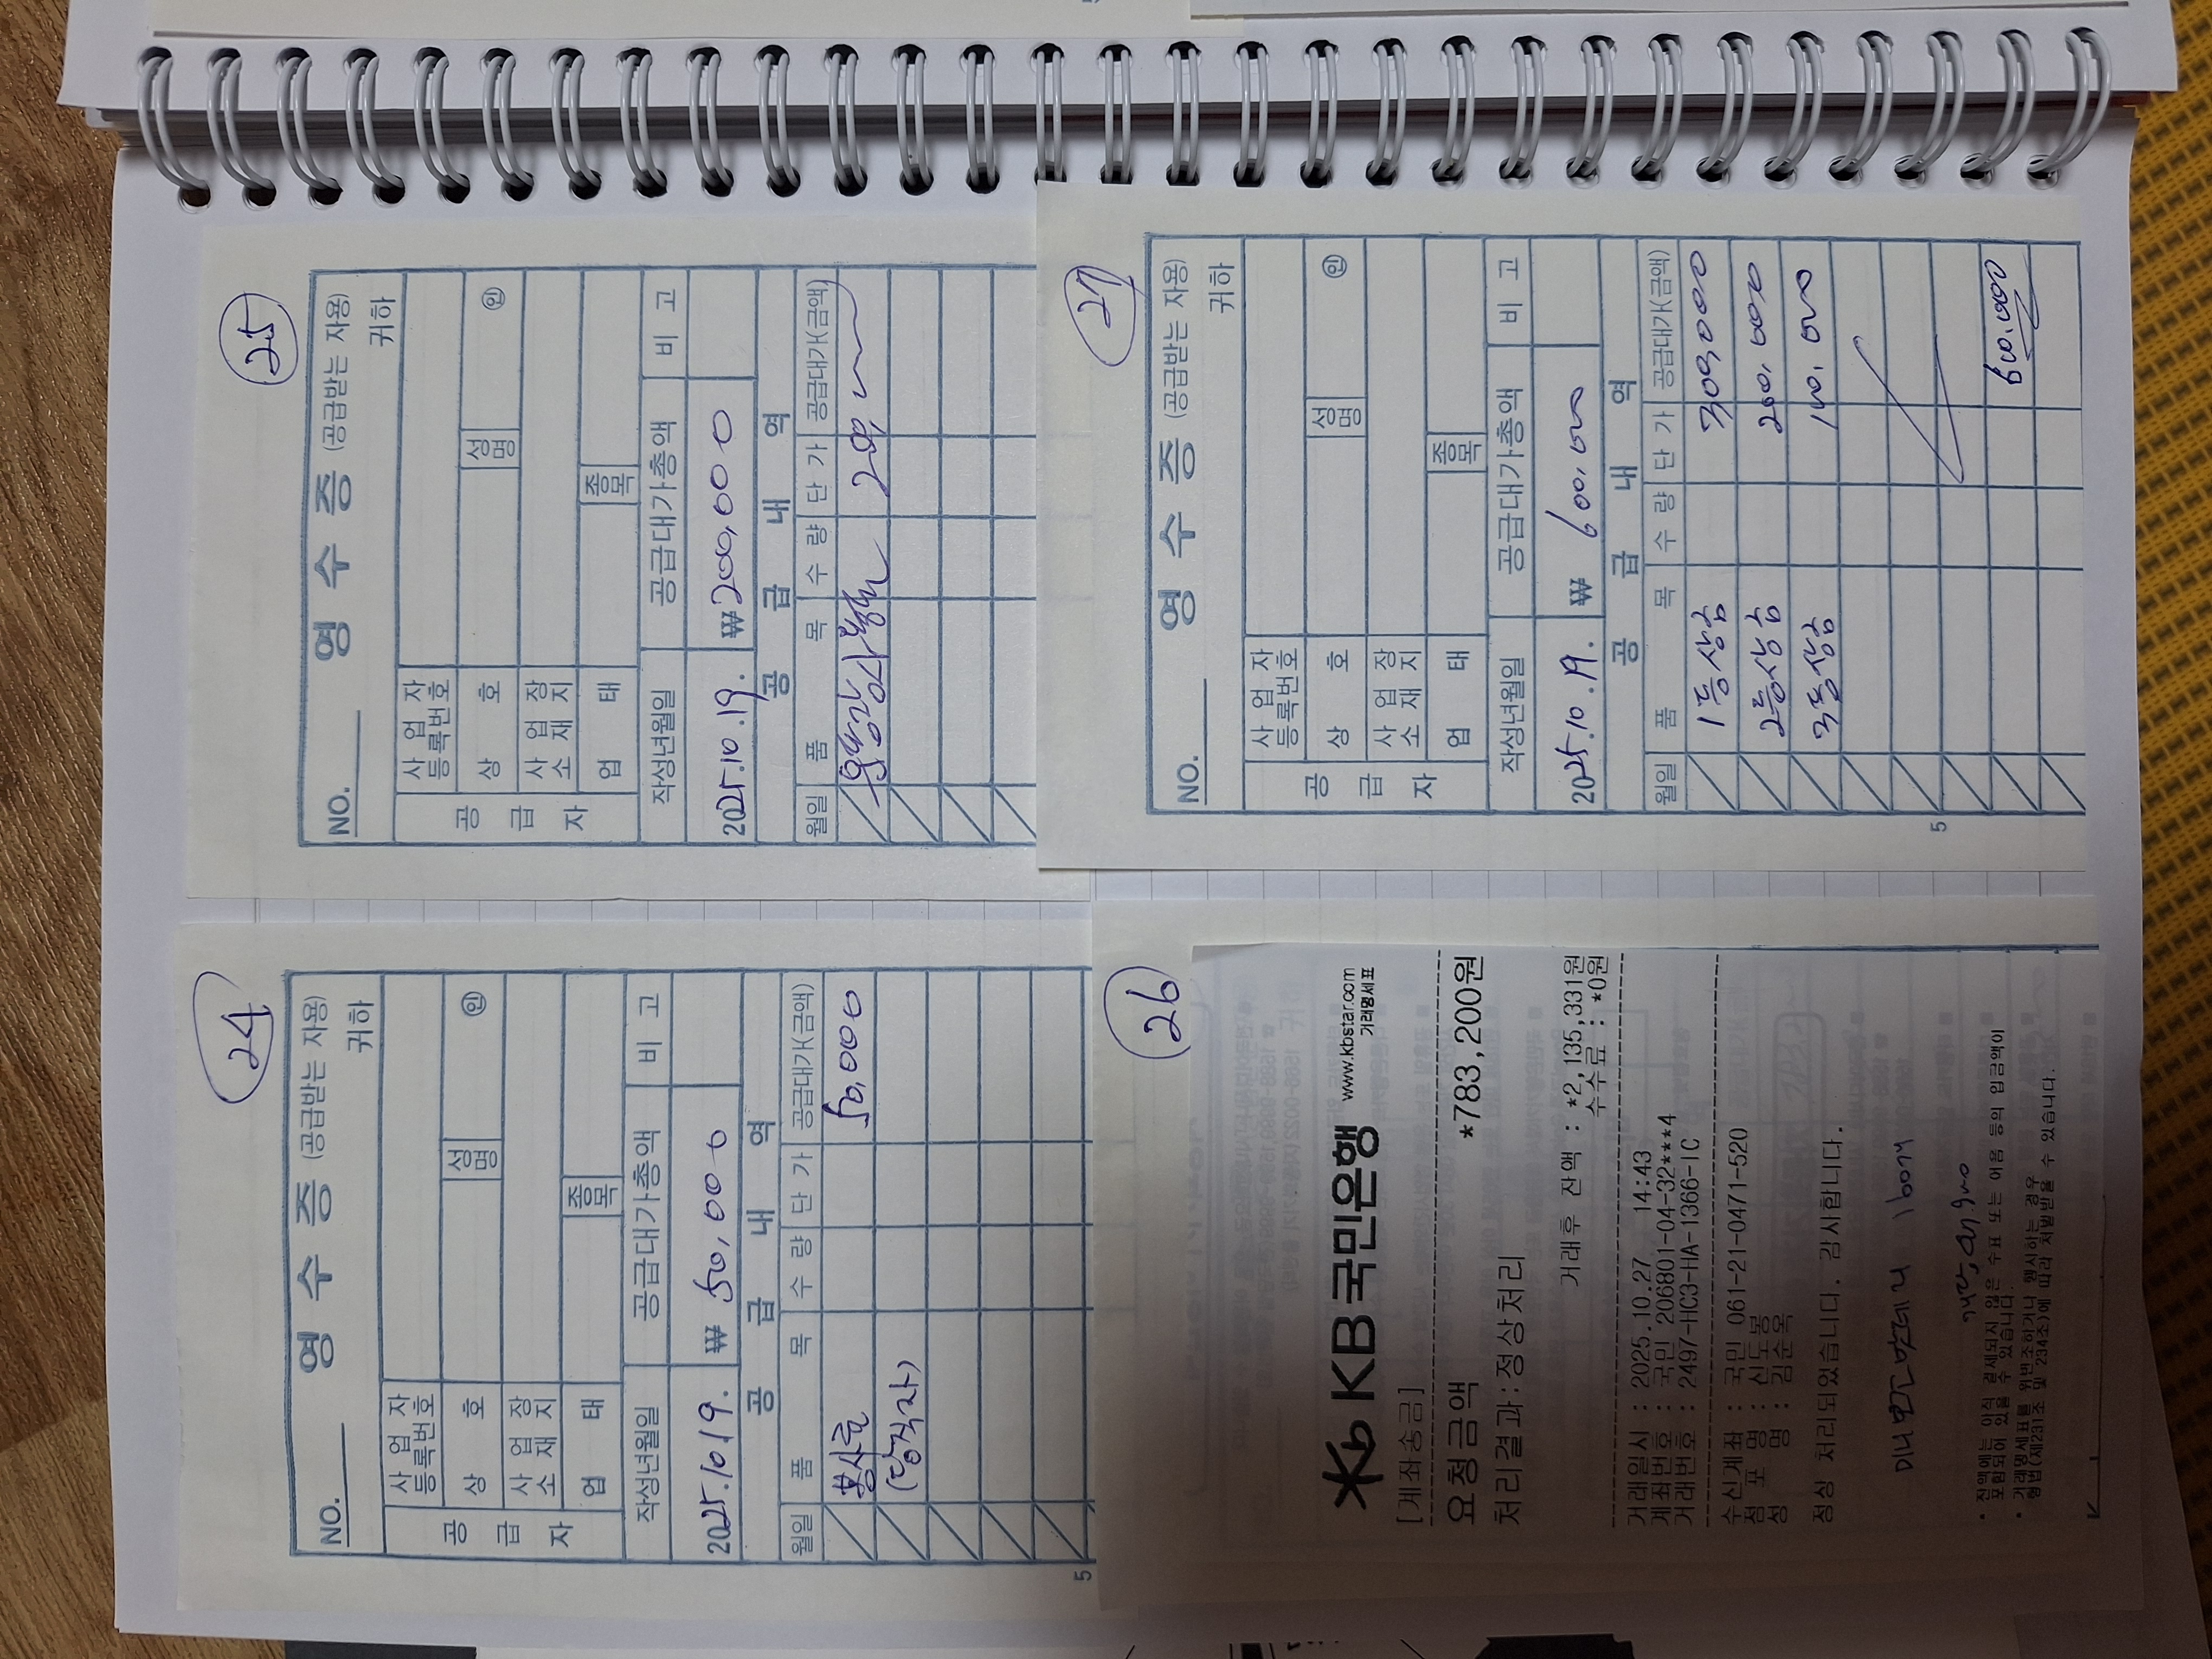 24
영 수 증 (공급받는 자용)
NO.
귀하
공 급 자
사 업 자 등록번호
상 호
성명
인
사 업 장 소 재 지
업 태
종목
작성년월일
공급대가총액
비 고
2025.10.19.
₩ 50,000
공 급 내 역
월일
품 목
수 량
단 가
공급대가(금액)
봉사료
50,000
(당직자)
5
25
영 수 증 (공급받는 자용)
NO.
귀하
공 급 자
사 업 자 등록번호
상 호
성명
인
사 업 장 소 재 지
업 태
종목
작성년월일
공급대가총액
비 고
2025.10.19.
₩ 200,000
공 급 내 역
월일
품 목
수 량
단 가
공급대가(금액)
26
KB국민은행 www.kbstar.com
거래명세표
[계좌송금]
요청금액 *783,200원
처리결과:정상처리
거래후 잔액 : *2,135,331원
수수료 : *0원
거래일시 : 2025.10.27 14:43
계좌번호 : 국민 206801-04-32***4
거래번호 : 2497-HC3-HA-1366-IC
수신계좌 : 국민 061-21-0471-520
점 포 명 : 신도봉
성 명 : 김순옥
정상 처리되었습니다. 감사합니다.
160개
* 잔액에는 아직 결제되지 않은 수표 또는 어음 등의 입금액이
포함되어 있을 수 있습니다.
* 거래명세표를 위변조하거나 행사하는 경우
형법(제231조 및 234조)에 따라 처벌받을 수 있습니다.
27
영 수 증 (공급받는 자용)
NO.
귀하
공 급 자
사 업 자 등록번호
상 호
성명
인
사 업 장 소 재 지
업 태
종목
작성년월일
공급대가총액
비 고
2025.10.19.
₩ 600,000
공 급 내 역
월일
품 목
수 량
단 가
공급대가(금액)
1등상금 300,000
2등상금 200,000
3등상금 100,000
600,000
5